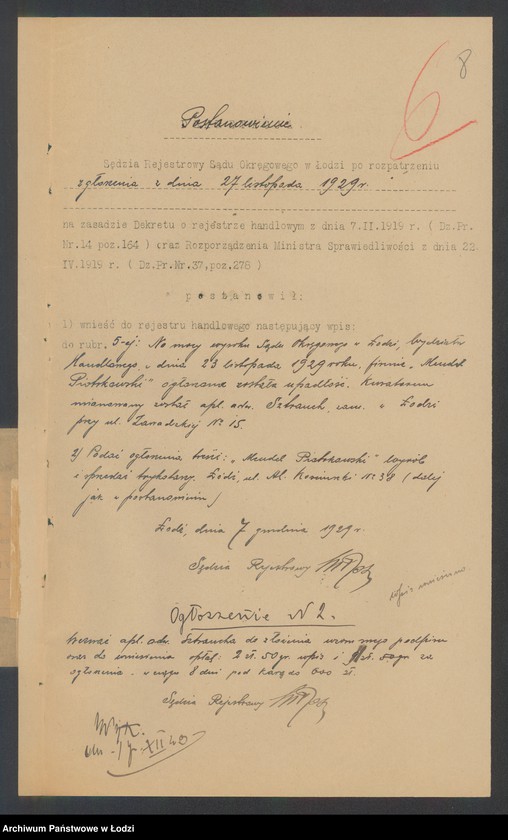 6
8
Postanowienie.
Sędzia Rejestrowy Sądu Okręgowego w Łodzi po rozpatrzeniu
zgłoszenia z dnia 27 listopada 1929 r.
na zasadzie Dekretu o rejestrze handlowym z dnia 7.II.1919 r. ( Dz.Pr.
Nr.14 poz.164 ) oraz Rozporządzenia Ministra Sprawiedliwości z dnia 22
IV.1919 r. ( Dz.Pr.Nr.37,poz.278 )
p o s t a n o w i ł:
1) wnieść do rejestru handlowego następujący wpis:
do rubr. 5-ej: Na mocy wyroku Sądu Okręgowego w Łodzi, Wydziału
Handlowego, z dnia 23 listopada 1929 roku, firmie „Mendel
Piotrkowski" ogłoszona została upadłość. Kuratorem
mianowany został apl. adw. Sztrauch, zam. w Łodzi
przy ul. Zawadzkiej Nr 15.
2) Podać ogłoszenia treść: „Mendel Piotrkowski" wyrób
i sprzedaż trykotaży. Łódź, ul. Al. Kościuszki Nr 38 (dalej
jak w postanowieniu)
Łódź, dnia 7 grudnia 1929 r.
Sędzia Rejestrowy
Ogłoszenie N 2.
Wezwać apl. adw. Sztraucha do złożenia wzoru jego podpisu
oraz do uiszczenia opłat: 2 zł. 50 gr. wpis i zł. 50 gr za
ogłoszenia w ciągu 8 dni pod karą do 600 zł.
Sędzia Rejestrowy
Wyk.
dn. 17 XII
Archiwum Państwowe w Łodzi